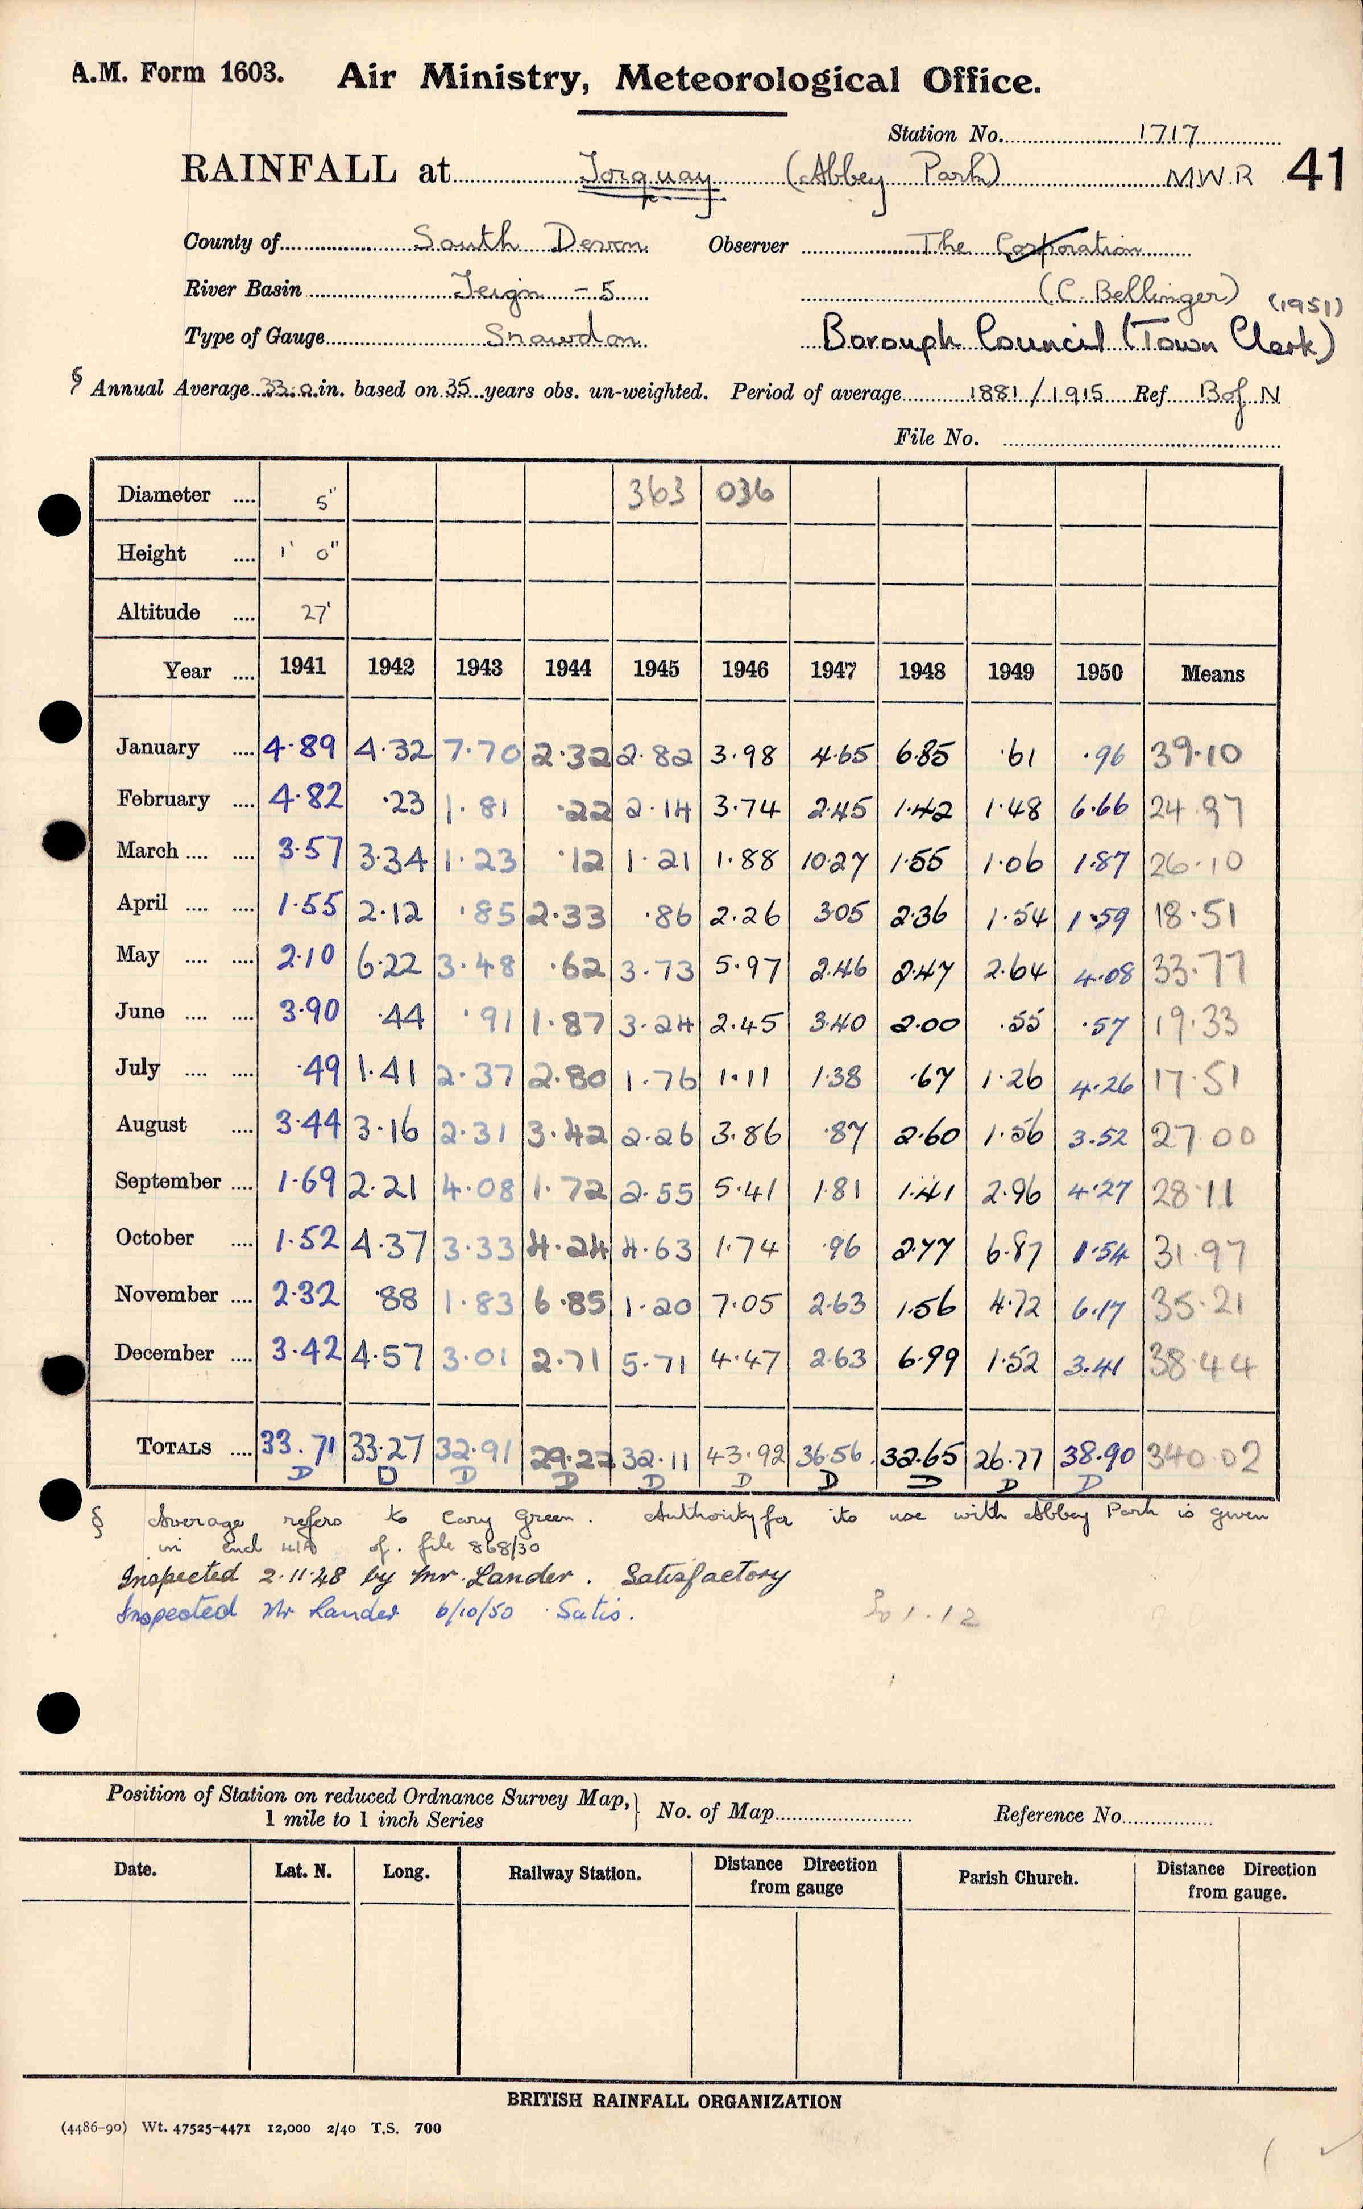 A.M. Form 1603. Air Ministry, Meteorological Office.
Station No. 1717
RAINFALL at Torquay (Abbey Park) MWR 41
County of South Devon Observer The Corporation
River Basin Teign - 5 (C. Bellinger) (1951)
Type of Gauge Snowdon Borough Council (Town Clerk)
§ Annual Average 33.0 in. based on 35 years obs. un-weighted. Period of average 1881/1915 Ref B of N
File No.
Diameter .... 5" 363 036
Height .... 1' 0"
Altitude .... 27'
Year .... 1941 1942 1943 1944 1945 1946 1947 1948 1949 1950 Means
January .... 4.89 4.32 7.70 2.32 2.82 3.98 4.65 6.85 .61 .96 39.10
February .... 4.82 .23 1.81 .22 2.14 3.74 2.45 1.42 1.48 6.66 24.97
March .... .... 3.57 3.34 1.23 .12 1.21 1.88 10.27 1.55 1.06 1.87 26.10
April .... .... 1.55 2.12 .85 2.33 .86 2.26 3.05 2.36 1.54 1.59 18.51
May .... .... 2.10 6.22 3.48 .62 3.73 5.97 2.46 2.47 2.64 4.08 33.77
June .... .... 3.90 .44 .91 1.87 3.24 2.45 3.40 2.00 .55 .57 19.33
July .... .... .49 1.41 2.37 2.80 1.76 1.11 1.38 .67 1.26 4.26 17.51
August .... 3.44 3.16 2.31 3.42 2.26 3.86 .87 2.60 1.56 3.52 27.00
September .... 1.69 2.21 4.08 1.72 2.55 5.41 1.81 1.41 2.96 4.27 28.11
October .... 1.52 4.37 3.33 4.24 4.63 1.74 .96 2.77 6.87 1.54 31.97
November .... 2.32 .88 1.83 6.85 1.20 7.05 2.63 1.56 4.72 6.17 35.21
December .... 3.42 4.57 3.01 2.71 5.71 4.47 2.63 6.99 1.52 3.41 38.44
TOTALS .... 33.71 33.27 32.91 29.22 32.11 43.92 36.56 32.65 26.77 38.90 340.02
D D D D D D D D D D
§ Average refers to Cary Green. Authority for its use with Abbey Park is given
in encl 41A of. file 868/30
Inspected 2.11.48 by Mr. Lander. Satisfactory
Inspected Mr Lander 6/10/50 Satis.
1.12
Position of Station on reduced Ordnance Survey Map, } No. of Map Reference No.
1 mile to 1 inch Series
Date. Lat. N. Long. Railway Station. Distance Direction from gauge Parish Church. Distance Direction from gauge.
BRITISH RAINFALL ORGANIZATION
(4486-90) Wt. 47525-4471 12,000 2/40 T.S. 700